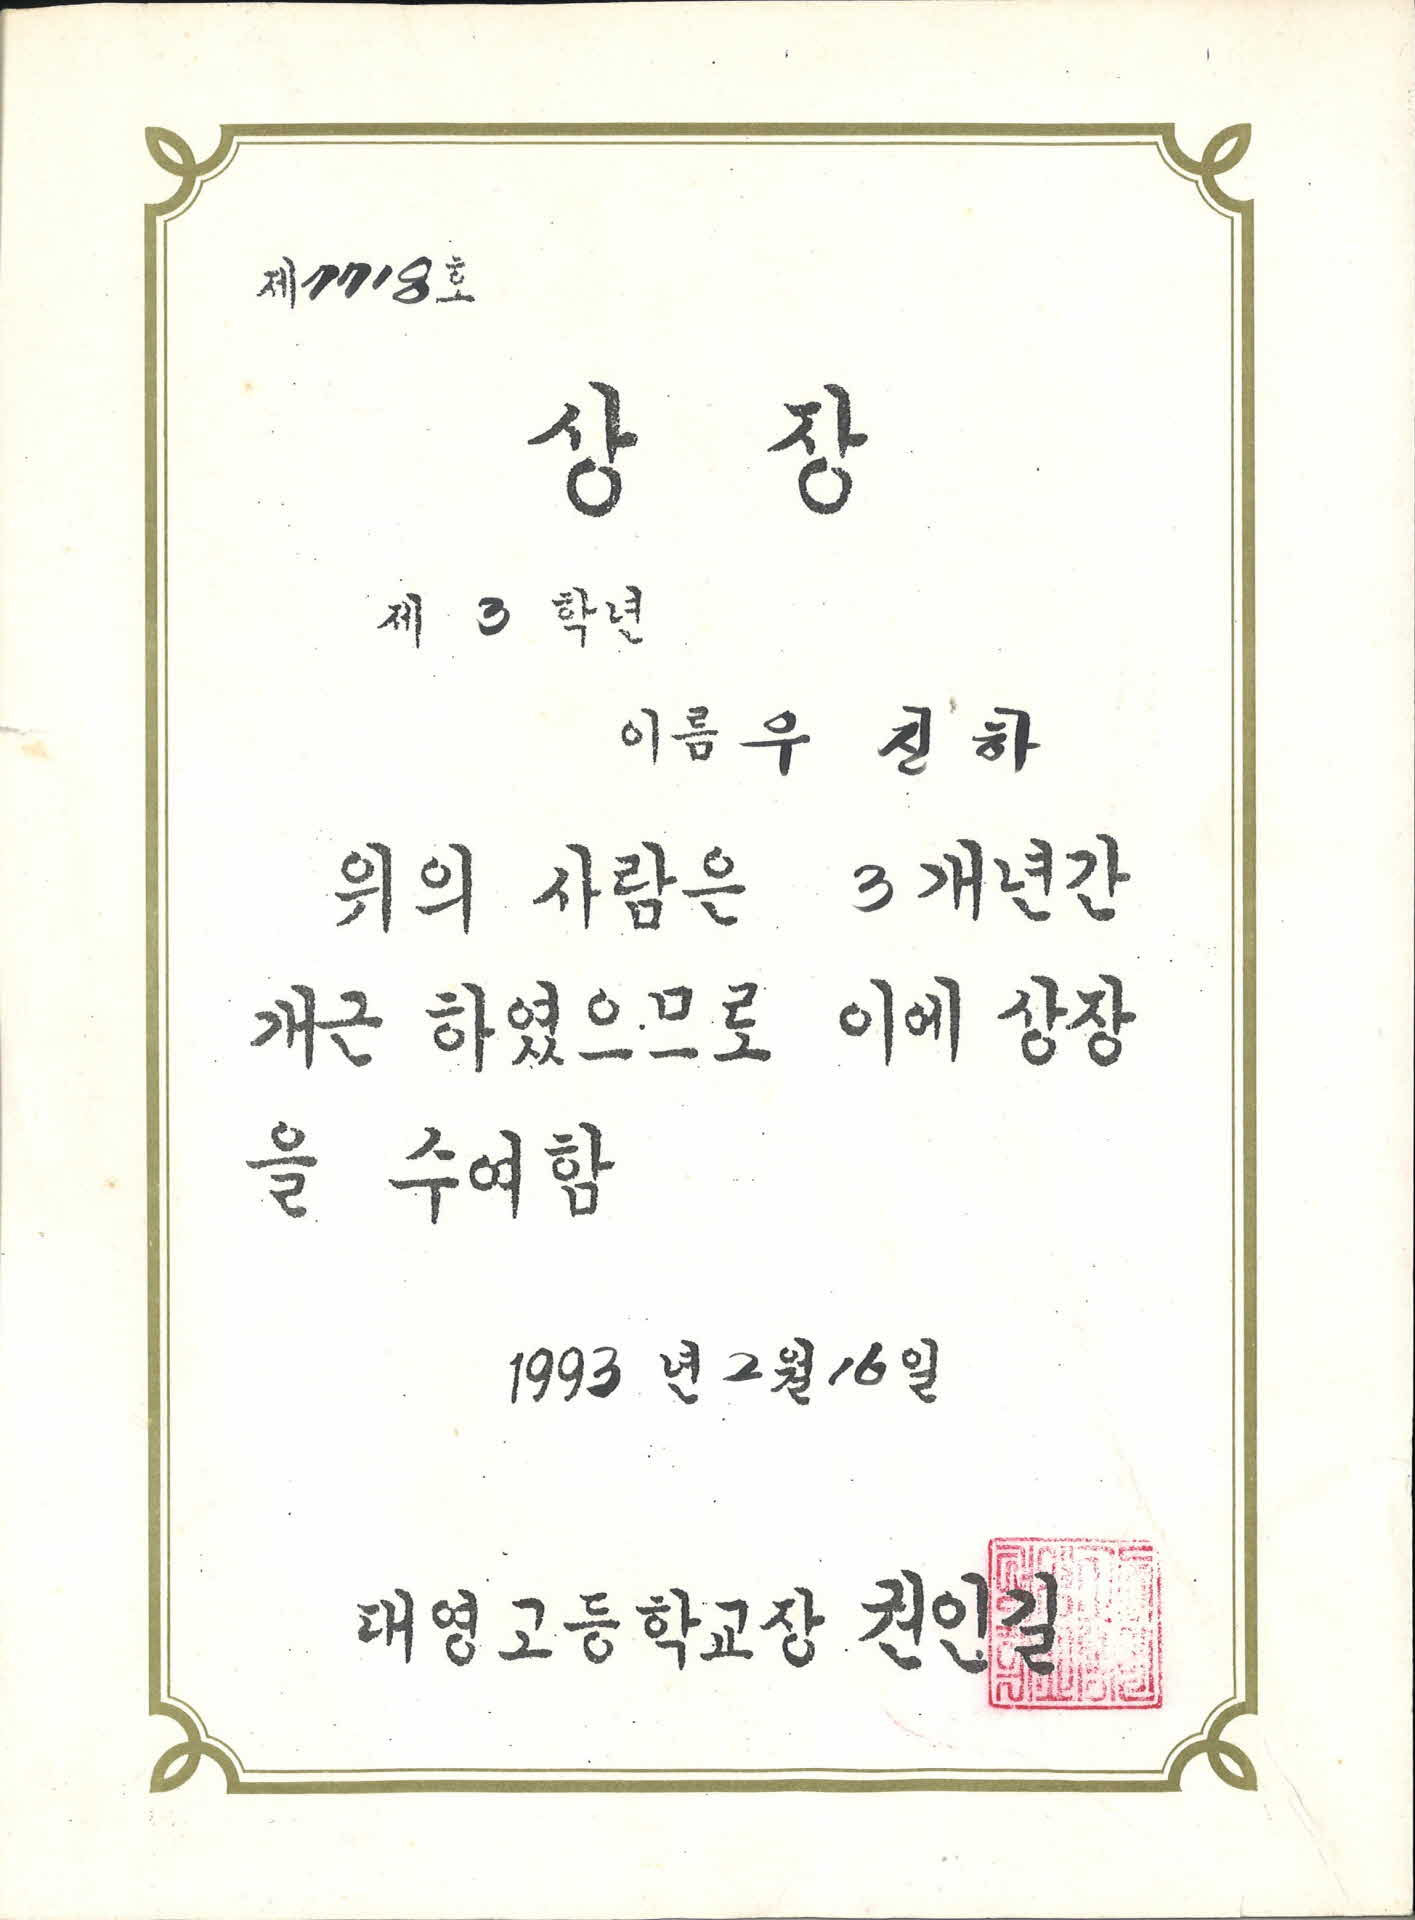 제7718호
상 장
제 3 학년
이름 우 진 하
위의 사람은 3개년간
개근 하였으므로 이에 상장
을 수여함
1993년 2월 16일
태영고등학교장 권인길